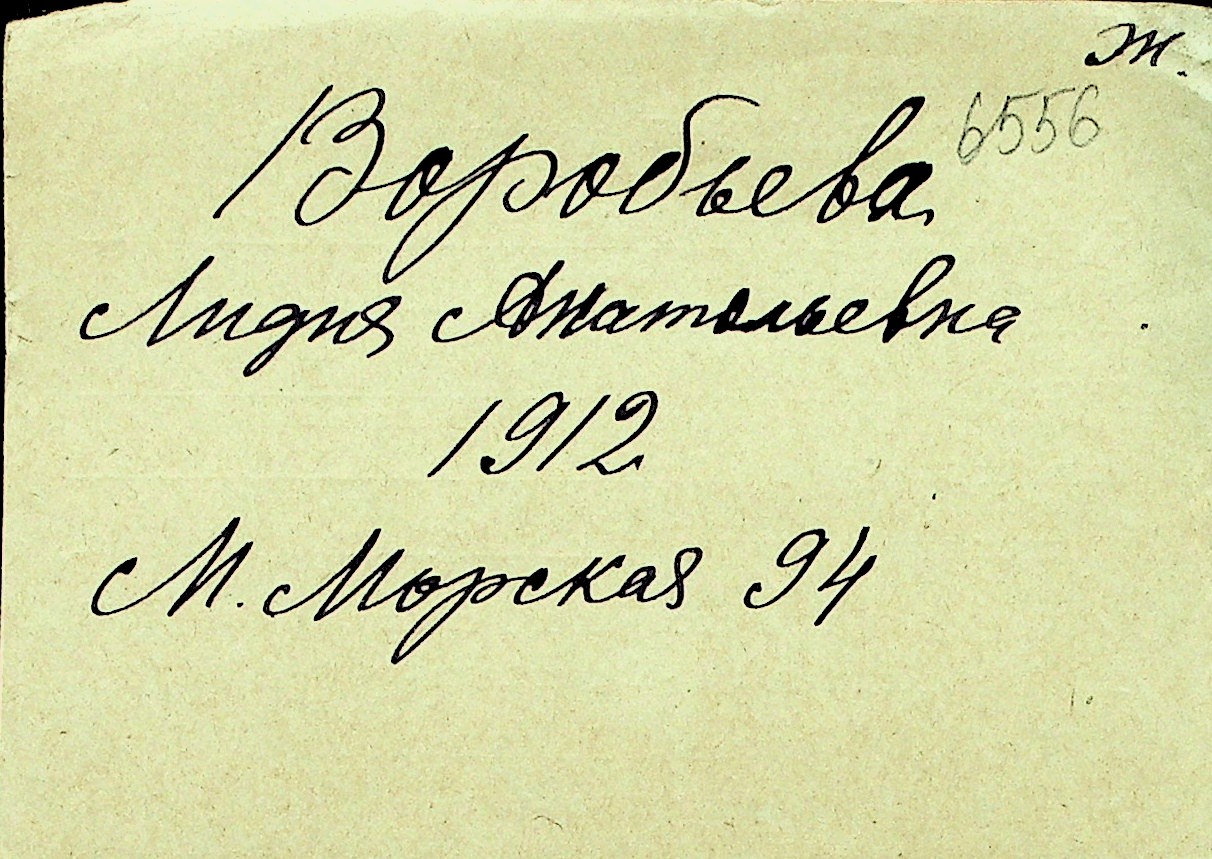 ж.
6556
Воробьева
Лидия Анатольевна
1912
М. Морская 94